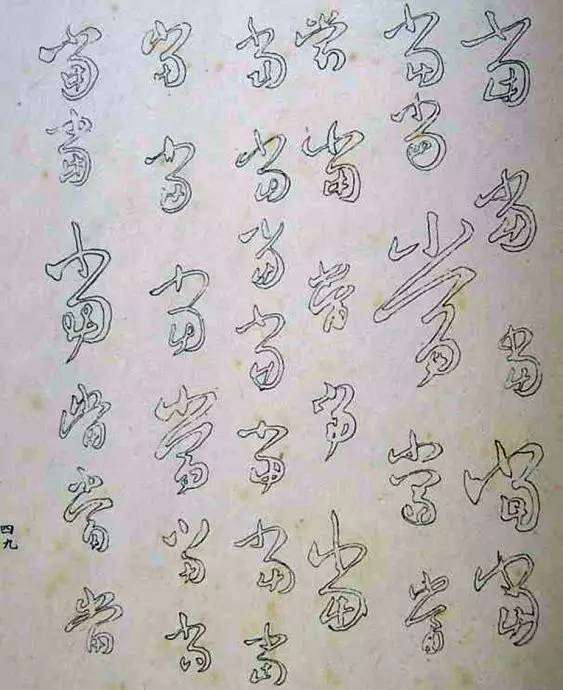 當當當當當
當當當當當
當當當當當
當當當當當當當
當當當當當當
當當當當當當
四九